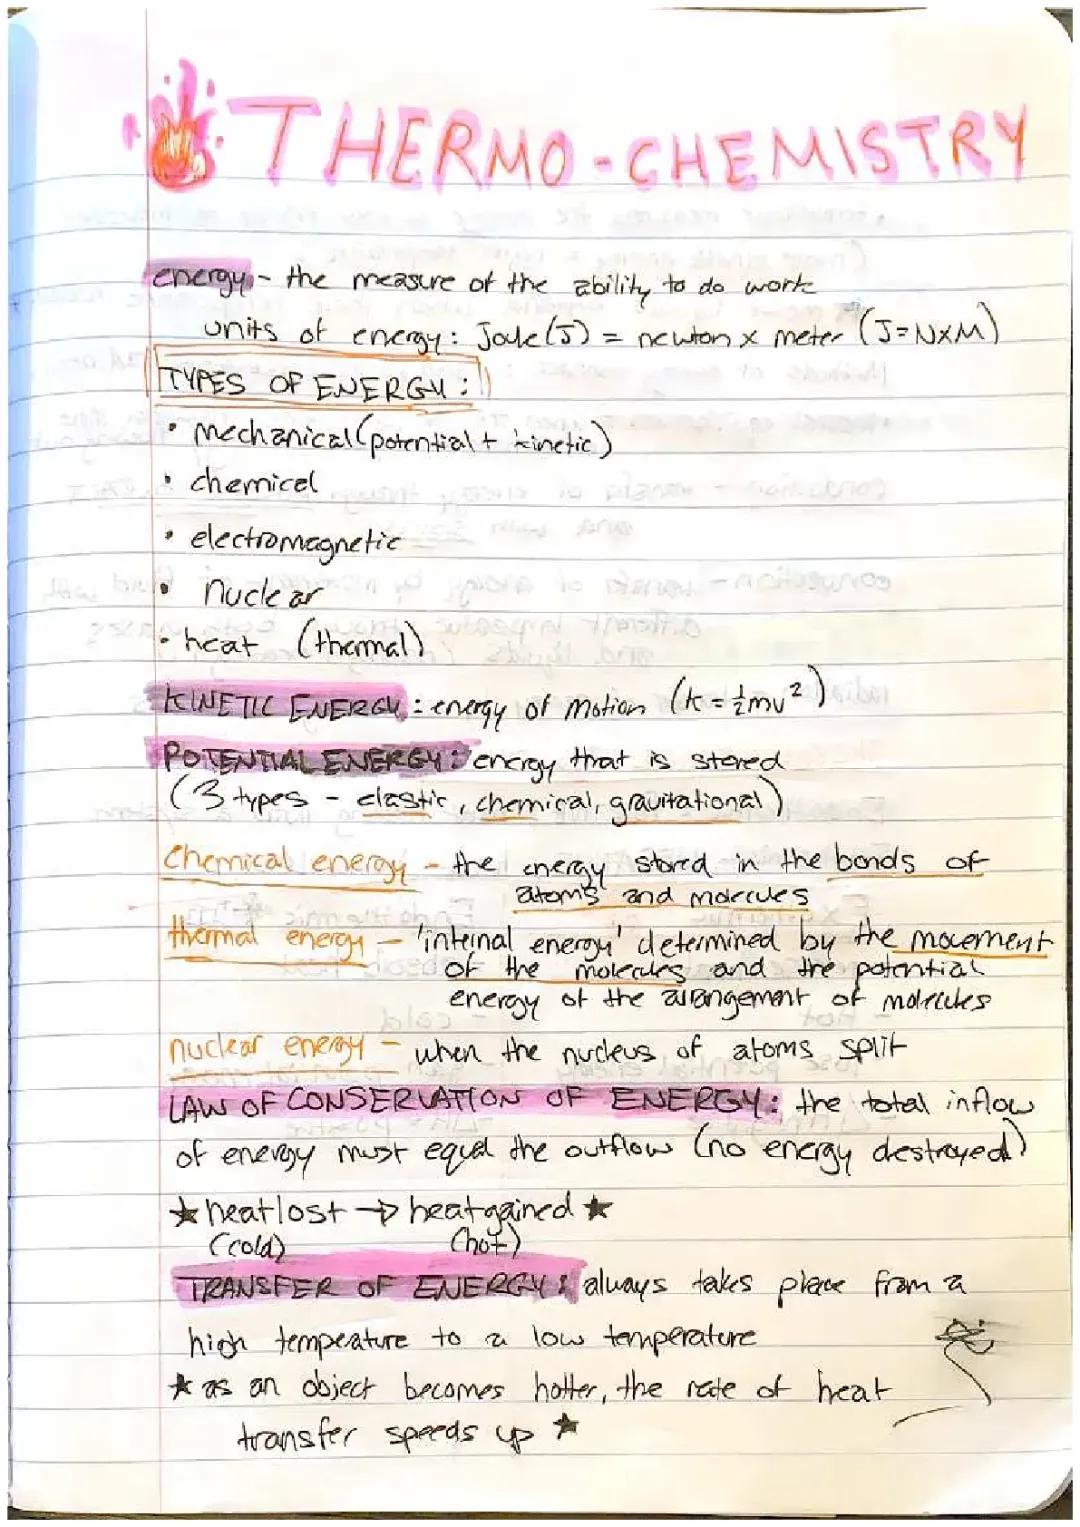 THERMO-CHEMISTRY
energy - the measure of the ability to do work
units of energy: Joule (J) = newton x meter (J=NxM)
TYPES OF ENERGY:
• mechanical (potential + kinetic)
• chemical
• electromagnetic
• nuclear
• heat (thermal)
KINETIC ENERGY: energy of motion (k = ½mv²)
POTENTIAL ENERGY: energy that is stored
(3 types - elastic, chemical, gravitational)
chemical energy - the energy stored in the bonds of
atoms and molecules
thermal energy - 'internal energy' determined by the movement
of the molecules and the potential
energy of the arrangement of molecules
nuclear energy - when the nucleus of atoms split
LAW OF CONSERVATION OF ENERGY: the total inflow
of energy must equal the outflow (no energy destroyed)
★ heat lost → heat gained ★
(cold) (hot)
TRANSFER OF ENERGY: always takes place from a
high temperature to a low temperature
★ as an object becomes hotter, the rate of heat
transfer speeds up ★